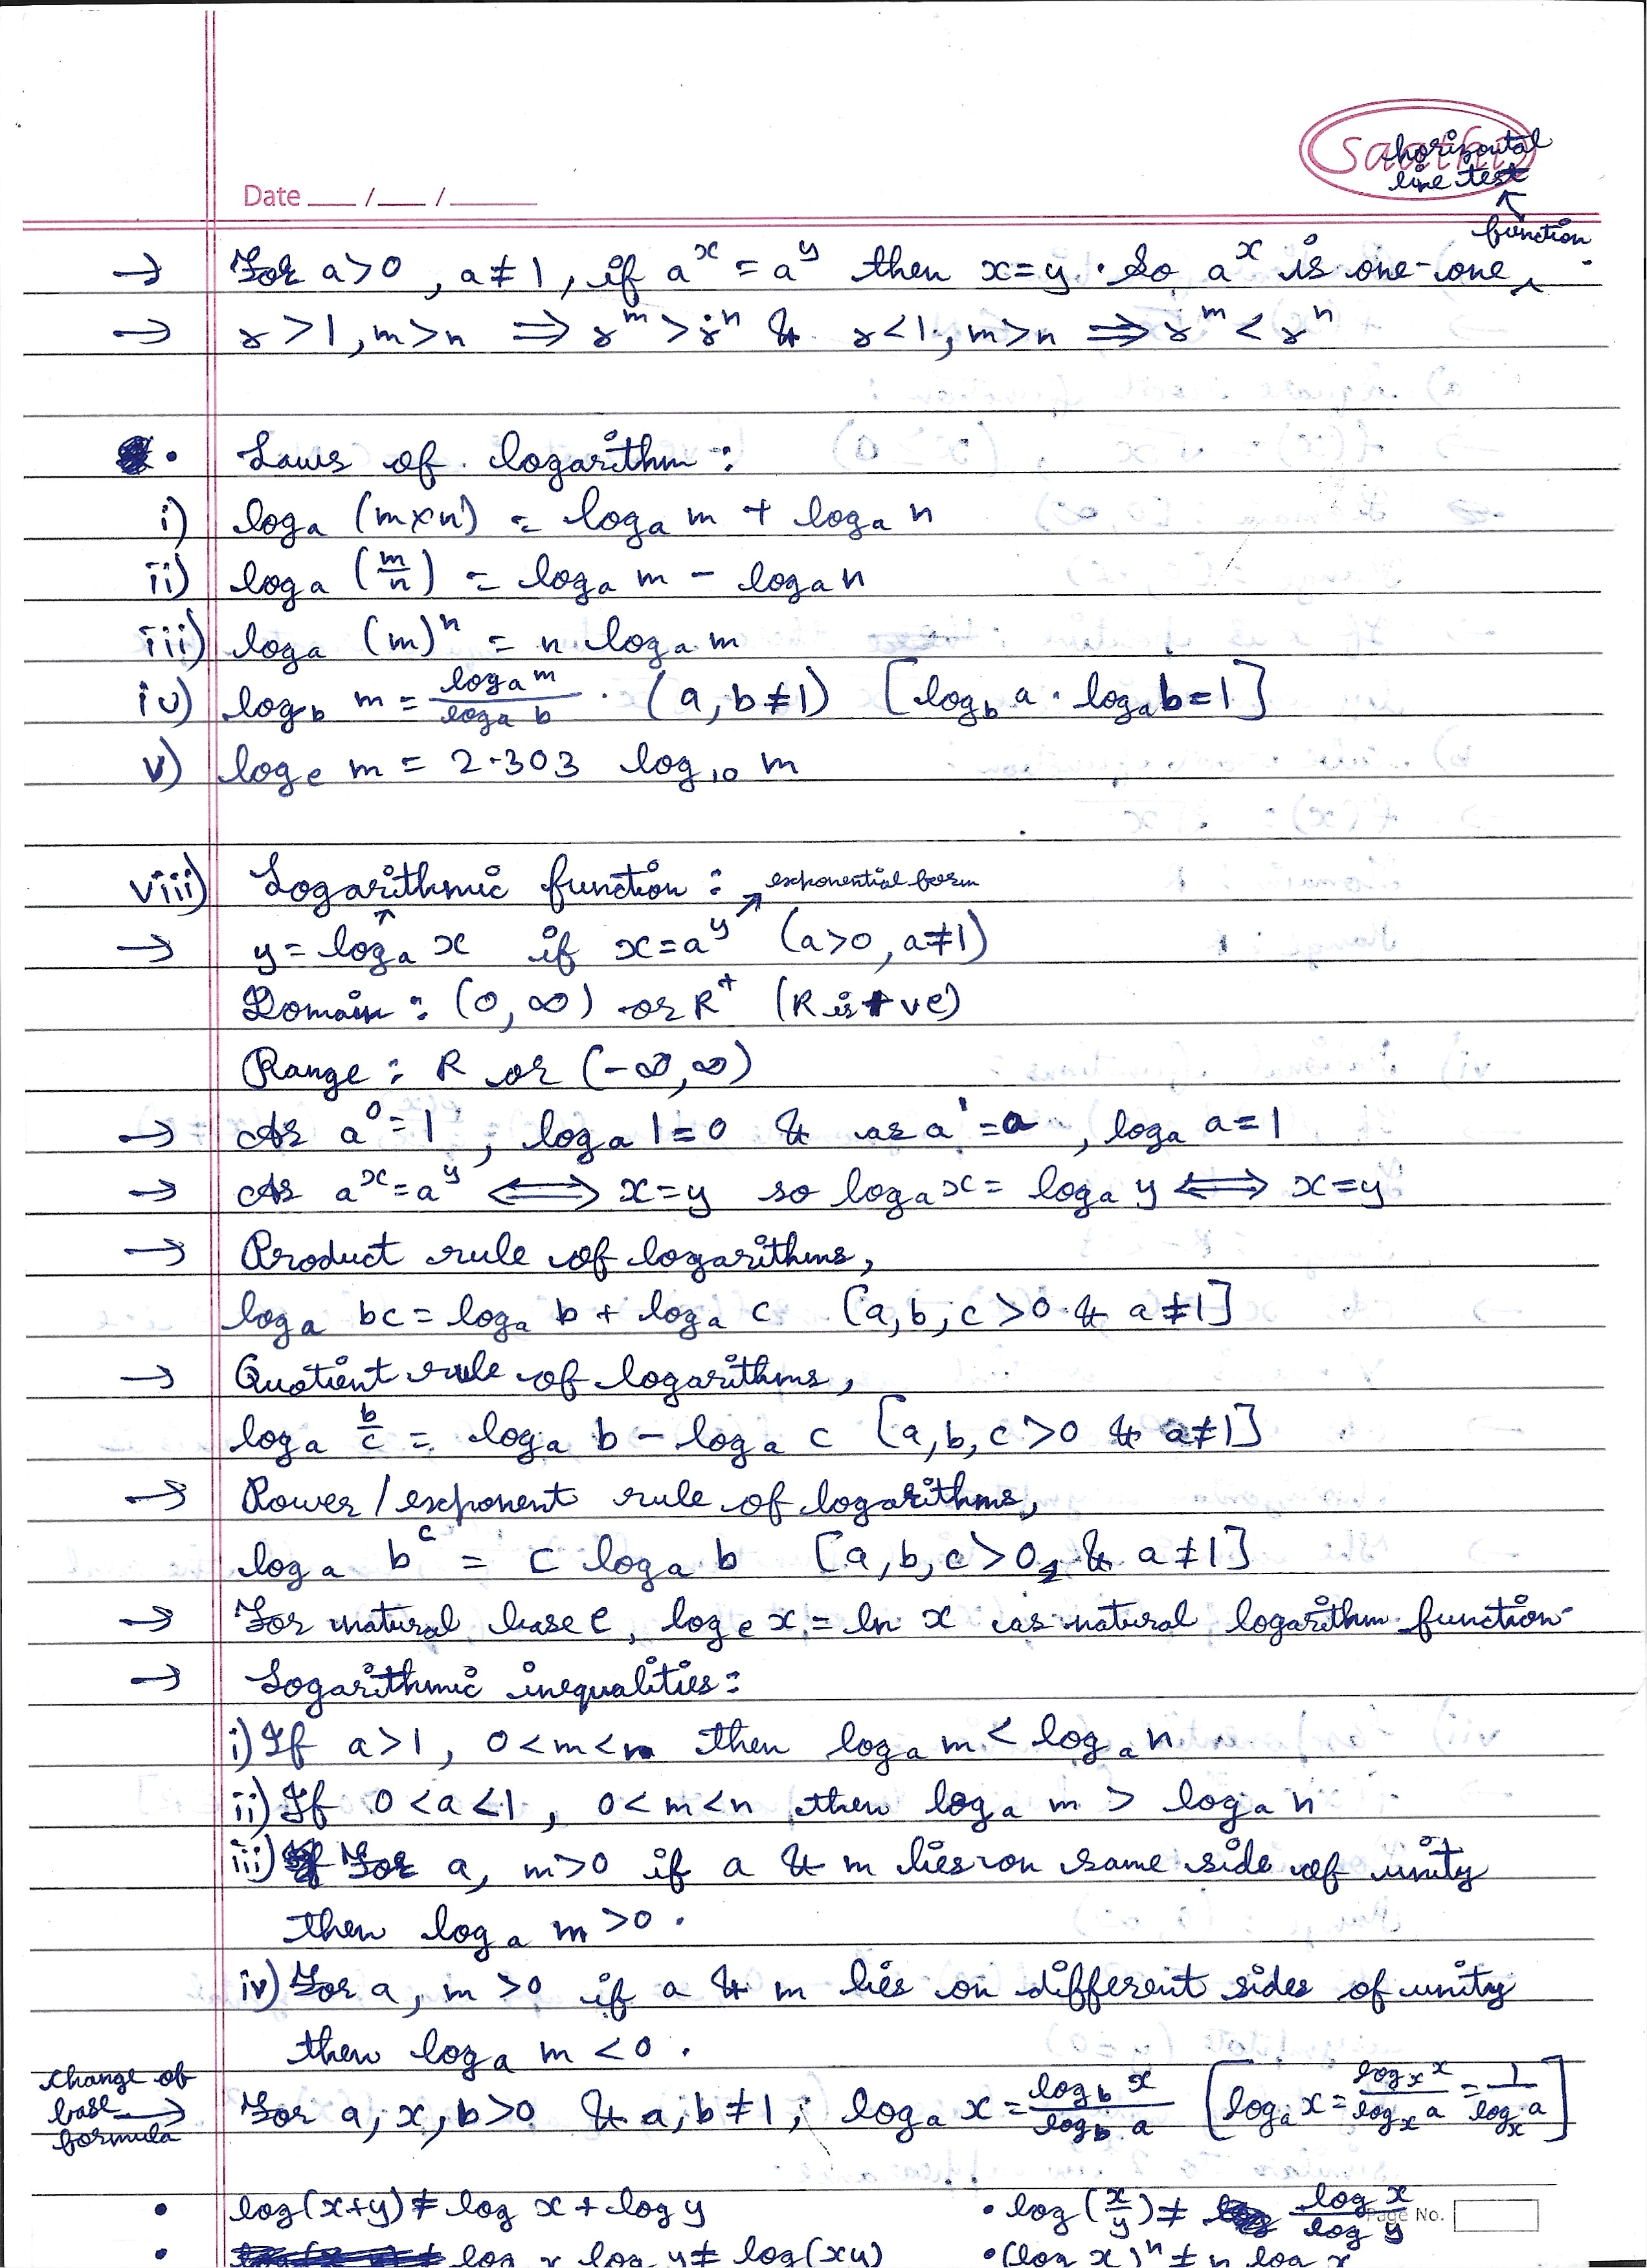 horizontal
line test
Date ___/___/______
↑
function
→ For a>0, a≠1, if aˣ = aʸ then x=y. So aˣ is one-one ^ .
→ r>1, m>n ⟹ rᵐ > rⁿ & r<1, m>n ⟹ rᵐ < rⁿ
• Laws of logarithm :
i) logₐ (m×n) = logₐ m + logₐ n
ii) logₐ (m/n) = logₐ m − logₐ n
iii) logₐ (m)ⁿ = n logₐ m
iv) log_b m = logₐ m / logₐ b . (a, b≠1) [log_b a · logₐ b = 1]
v) logₑ m = 2.303 log₁₀ m
viii) Logarithmic function : ↗ exponential form
→ y = logₐ x if x = aʸ (a>0, a≠1)
Domain : (0, ∞) or R⁺ (R is +ve)
Range : R or (-∞, ∞)
→ As a⁰ = 1, logₐ 1 = 0 & as a¹ = a, logₐ a = 1
→ As aˣ = aʸ ⟺ x=y so logₐ x = logₐ y ⟺ x=y
→ Product rule of logarithms,
logₐ bc = logₐ b + logₐ c [a, b, c >0 & a≠1]
→ Quotient rule of logarithms,
logₐ b/c = logₐ b − logₐ c [a, b, c >0 & a≠1]
→ Power/exponent rule of logarithms,
logₐ bᶜ = c logₐ b [a, b, c>0, & a≠1]
→ For natural base e, logₑ x = ln x as natural logarithm function
→ Logarithmic inequalities:
i) If a>1, 0<m<n then logₐ m < logₐ n
ii) If 0<a<1, 0<m<n then logₐ m > logₐ n
iii) For a, m>0 if a & m lies on same side of unity
then logₐ m >0.
iv) For a, m >0 if a & m lies on different sides of unity
then logₐ m <0.
change of
base →
formula
For a, x, b>0 & a, b≠1, logₐ x = log_b x / log_b a [logₐ x = logₓ x / logₓ a = 1 / logₓ a]
• log(x+y) ≠ log x + log y • log (x/y) ≠ log x / log y
Page No.
• log x log y ≠ log(xy) • (log x)ⁿ ≠ n log x